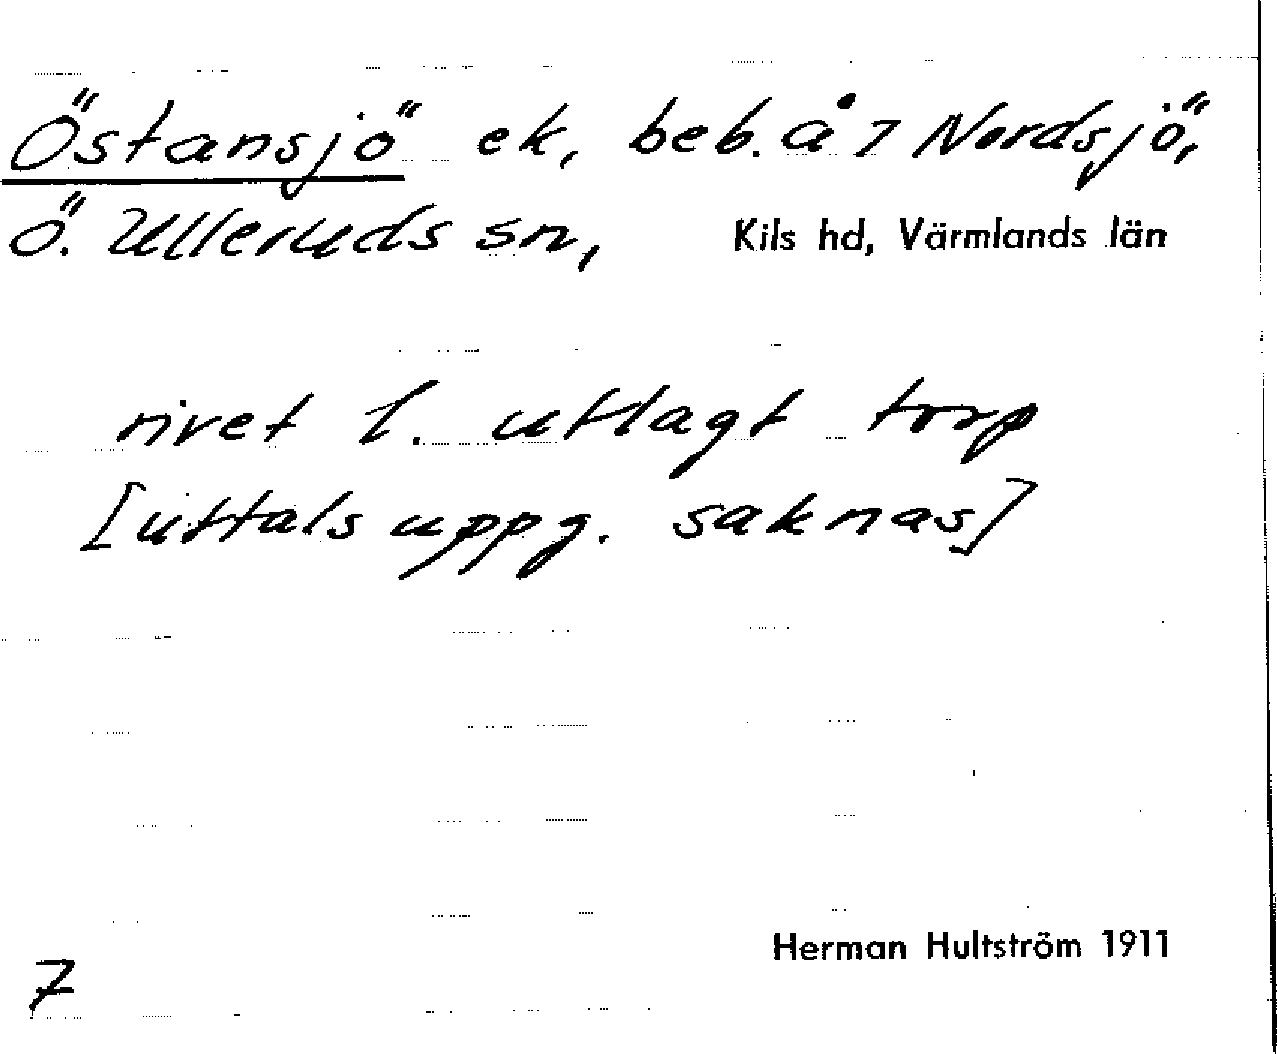 Östansjö ek, beb. å 7 Nordsjö,
Ö. Ulleruds sn, Kils hd, Värmlands län
rivet l. utlagt torp
[uttalsuppg. saknas]
Herman Hultström 1911
7